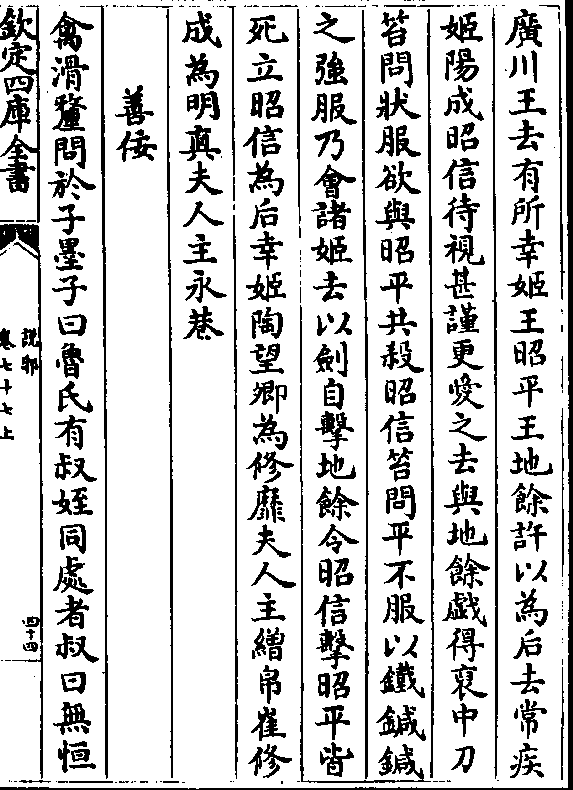 廣川王去有所幸姬王昭平王地餘許以為后去常疾
姬陽成昭信待視甚謹更愛之去與地餘戲得裒中刀
笞問狀服欲與昭平共殺昭信笞問平不服以鐵鍼鍼
之強服乃會諸姬去以劍自擊地餘令昭信擊昭平皆
死立昭信為后幸姬陶望卿為修靡夫人主繒帛崔修
成為明貞夫人主永巷
善佞
禽滑釐問於子墨子曰魯氏有叔姪同處者叔曰無恒
欽定四庫全書
說郛
卷七十七上
四十四